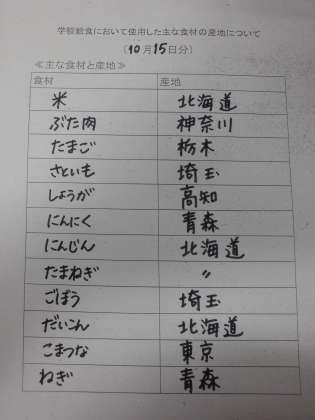 学校給食において使用した主な食材の産地について
（10月15日分）
≪主な食材と産地≫
食材 産地
米 北海道
ぶた肉 神奈川
たまご 栃木
さといも 埼玉
しょうが 高知
にんにく 青森
にんじん 北海道
たまねぎ 〃
ごぼう 埼玉
だいこん 北海道
こまつな 東京
ねぎ 青森